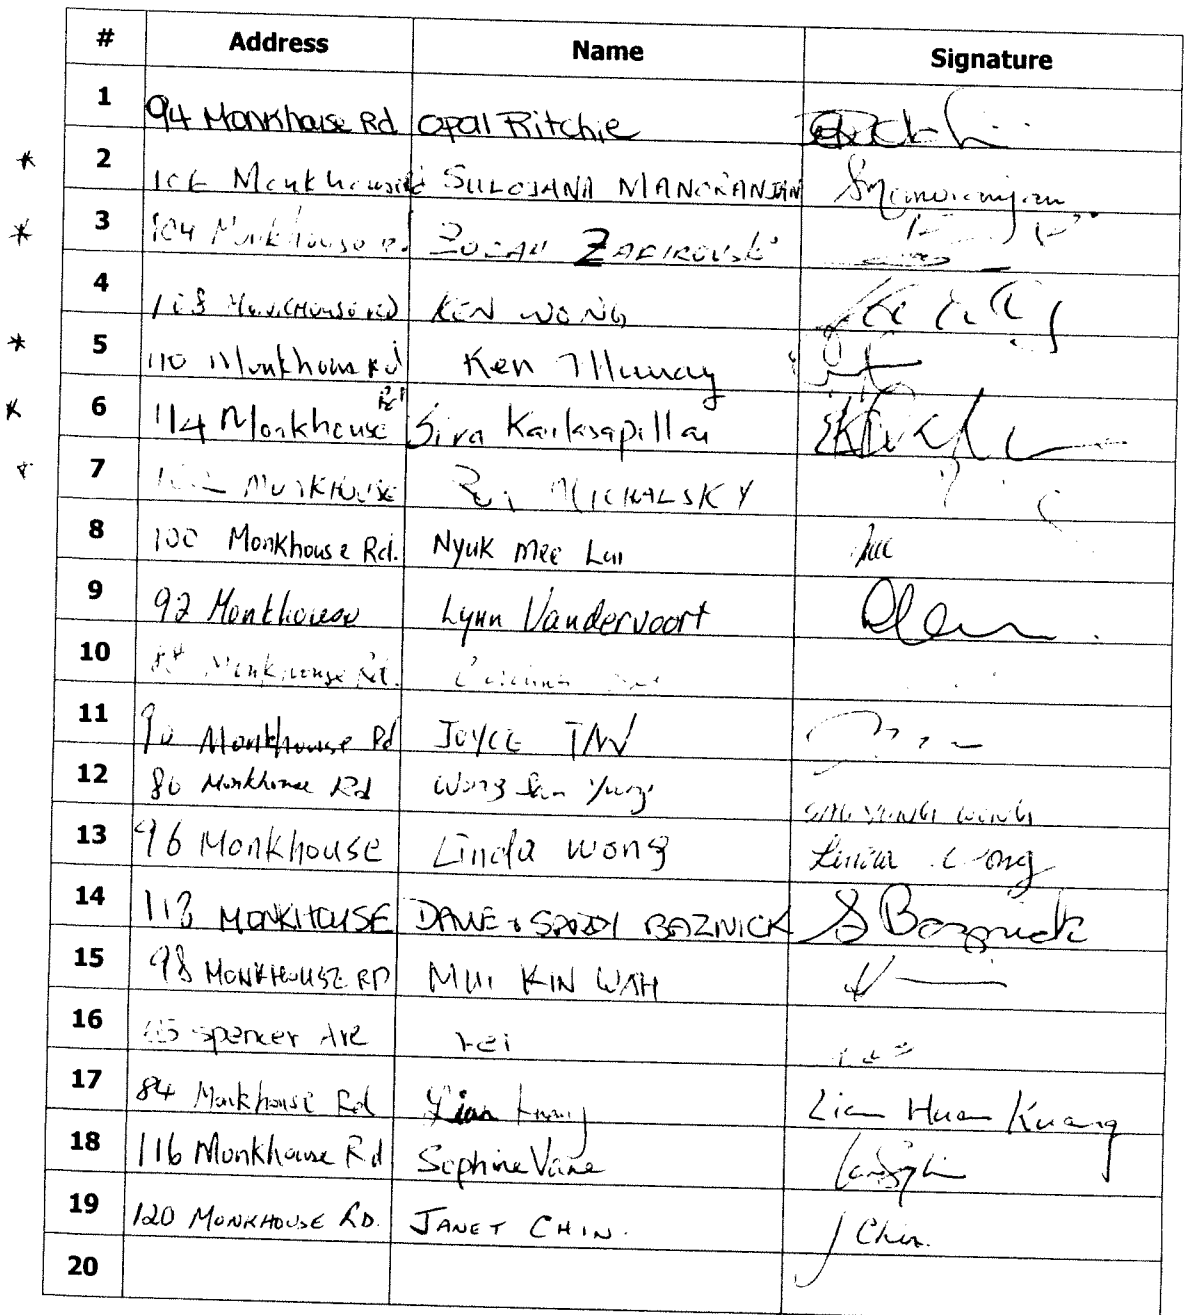 # Address Name Signature
1 94 Monkhouse Rd Opal Ritchie
* 2 106 Monkhouse SULOJANA MANORANJAN SManoranjan
* 3 104 Monkhouse Rd ZORAN ZAFIROVSKI
4 108 MONKHOUSE RD KEN WONG
* 5 110 Monkhouse Rd Ken Murray
* 6 114 Monkhouse Rd Siva Kailasapillai
* 7 102 MONKHOUSE MICHALSKY
8 100 Monkhouse Rd. Nyuk Mee Lui Lui
9 92 Monkhouse Lynn Vandervoort
10 88 Monkhouse Rd.
11 90 Monkhouse Rd JOYCE TAN
12 86 Monkhouse Rd Wong San Yung SAN YUNG WONG
13 96 Monkhouse Linda Wong Linda Wong
14 118 MONKHOUSE DAVE + BAZNICK S Baznick
15 98 MONKHOUSE RD MUI KIN WAH
16 Spencer Ave
17 84 Monkhouse Rd Lian Kuang Lian Huan Kuang
18 116 Monkhouse Rd Sophine Vane
19 120 MONKHOUSE RD. JANET CHIN. J Chin.
20